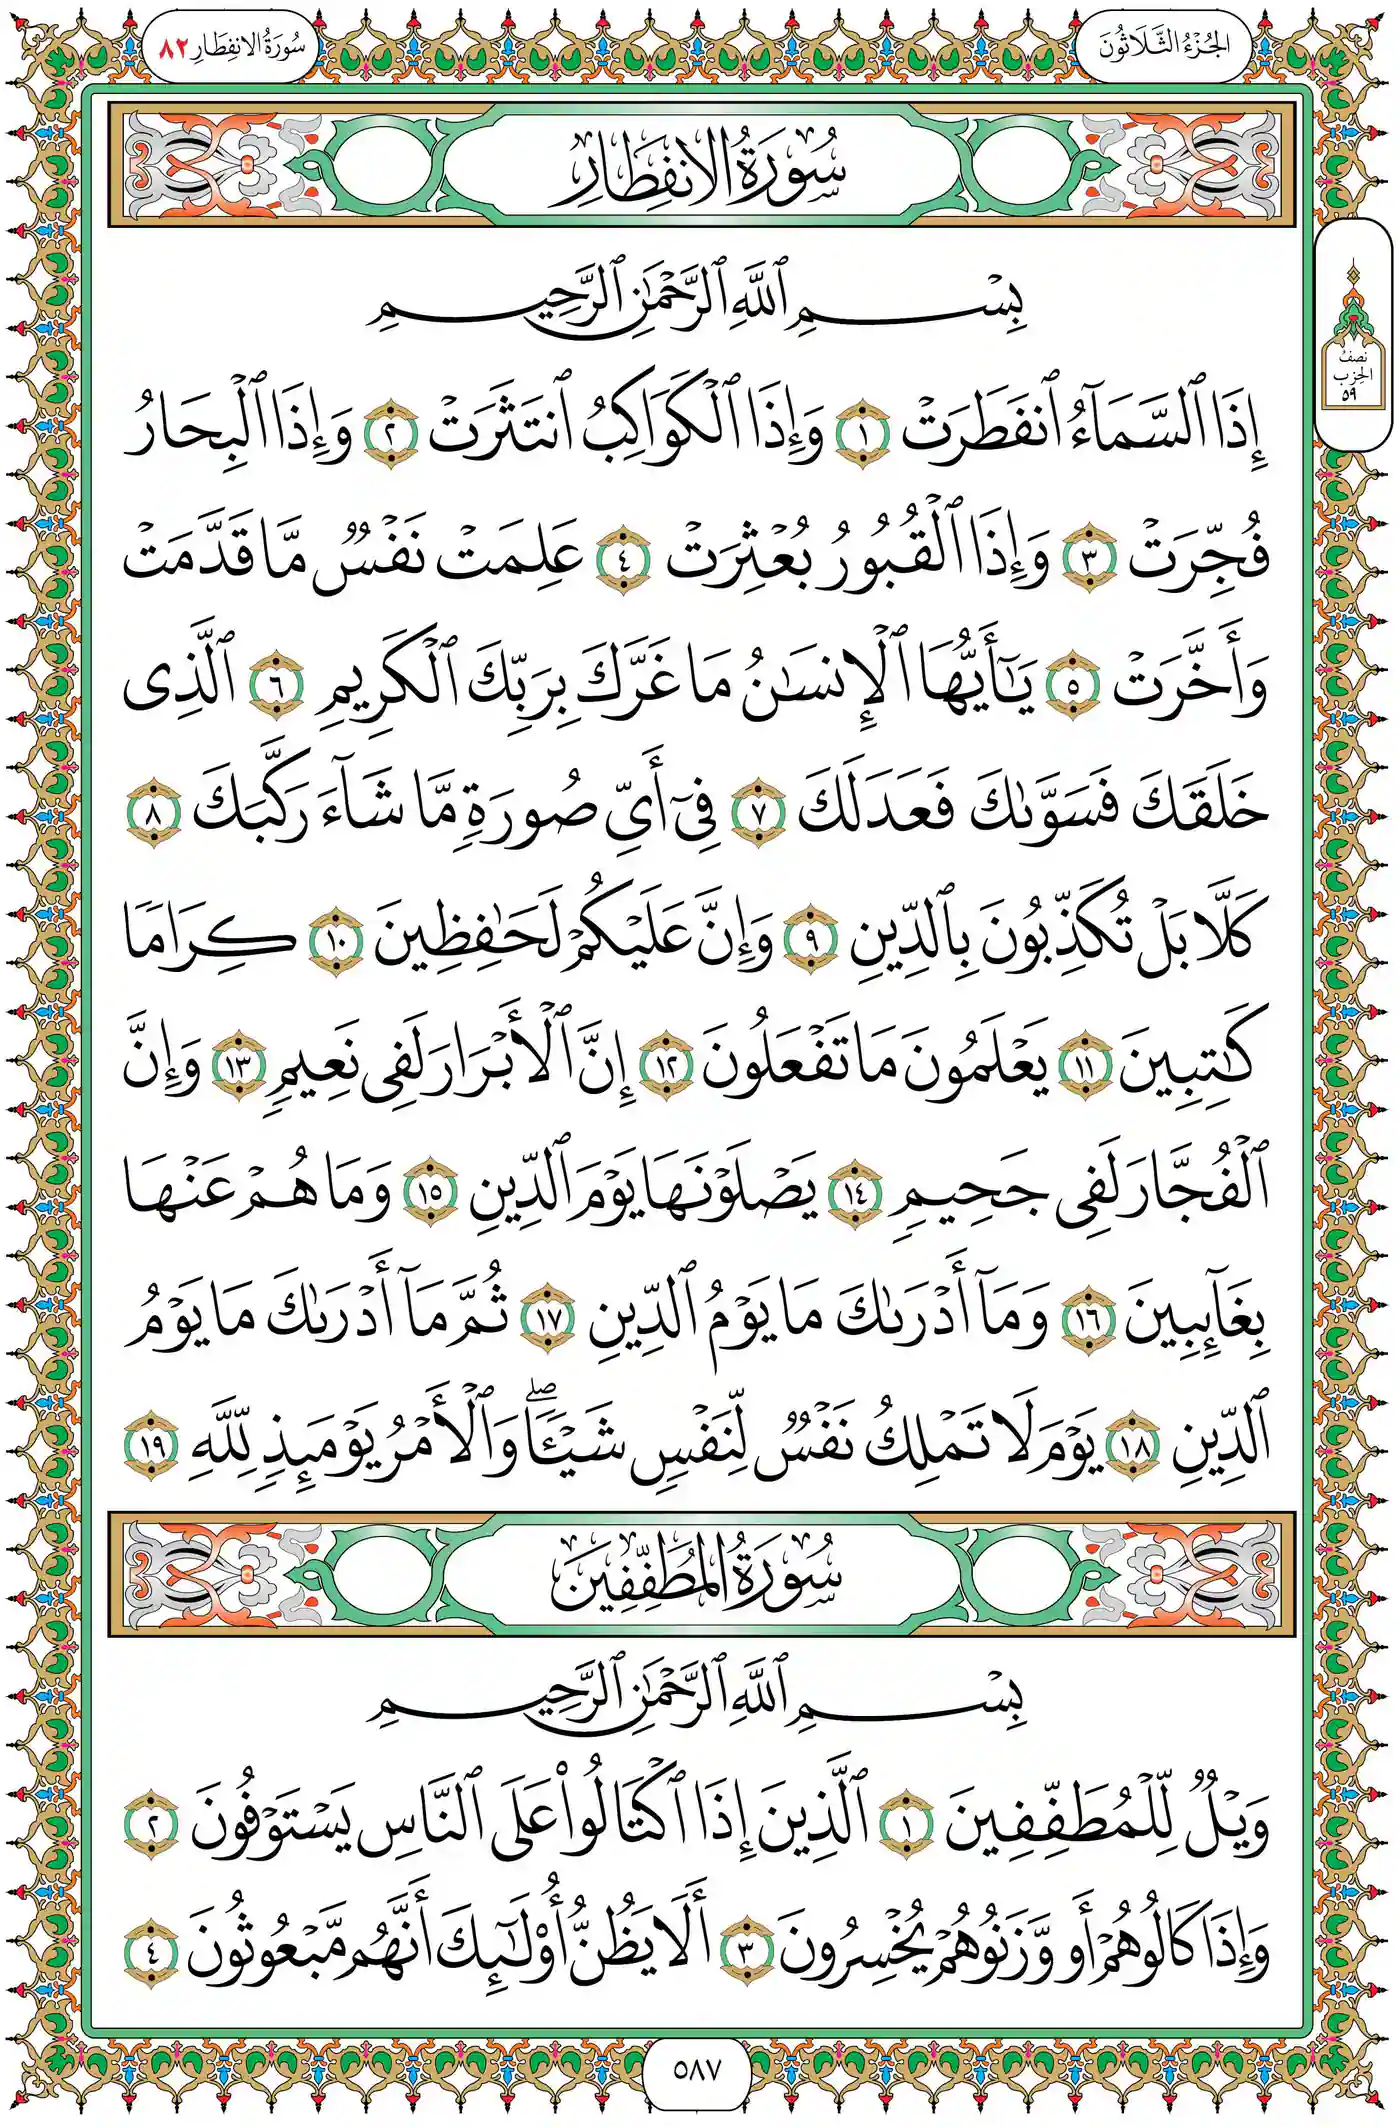 الجُزْءُ الثَّلَاثُونَ
سُورَةُ الانفِطَارِ ٨٢
سُورَةُ الانفِطَارِ
نصفُ
الحِزب
٥٩
بِسْمِ ٱللَّهِ ٱلرَّحْمَٰنِ ٱلرَّحِيمِ
إِذَا ٱلسَّمَآءُ ٱنفَطَرَتْ ١ وَإِذَا ٱلْكَوَاكِبُ ٱنتَثَرَتْ ٢ وَإِذَا ٱلْبِحَارُ
فُجِّرَتْ ٣ وَإِذَا ٱلْقُبُورُ بُعْثِرَتْ ٤ عَلِمَتْ نَفْسٌ مَّا قَدَّمَتْ
وَأَخَّرَتْ ٥ يَٰٓأَيُّهَا ٱلْإِنسَٰنُ مَا غَرَّكَ بِرَبِّكَ ٱلْكَرِيمِ ٦ ٱلَّذِى
خَلَقَكَ فَسَوَّىٰكَ فَعَدَلَكَ ٧ فِىٓ أَىِّ صُورَةٍ مَّا شَآءَ رَكَّبَكَ ٨
كَلَّا بَلْ تُكَذِّبُونَ بِٱلدِّينِ ٩ وَإِنَّ عَلَيْكُمْ لَحَٰفِظِينَ ١٠ كِرَامًا
كَٰتِبِينَ ١١ يَعْلَمُونَ مَا تَفْعَلُونَ ١٢ إِنَّ ٱلْأَبْرَارَ لَفِى نَعِيمٍ ١٣ وَإِنَّ
ٱلْفُجَّارَ لَفِى جَحِيمٍ ١٤ يَصْلَوْنَهَا يَوْمَ ٱلدِّينِ ١٥ وَمَا هُمْ عَنْهَا
بِغَآئِبِينَ ١٦ وَمَآ أَدْرَىٰكَ مَا يَوْمُ ٱلدِّينِ ١٧ ثُمَّ مَآ أَدْرَىٰكَ مَا يَوْمُ
ٱلدِّينِ ١٨ يَوْمَ لَا تَمْلِكُ نَفْسٌ لِّنَفْسٍ شَيْـًٔا ۖ وَٱلْأَمْرُ يَوْمَئِذٍ لِّلَّهِ ١٩
سُورَةُ المُطَفِّفِينَ
بِسْمِ ٱللَّهِ ٱلرَّحْمَٰنِ ٱلرَّحِيمِ
وَيْلٌ لِّلْمُطَفِّفِينَ ١ ٱلَّذِينَ إِذَا ٱكْتَالُوا۟ عَلَى ٱلنَّاسِ يَسْتَوْفُونَ ٢
وَإِذَا كَالُوهُمْ أَو وَّزَنُوهُمْ يُخْسِرُونَ ٣ أَلَا يَظُنُّ أُو۟لَٰٓئِكَ أَنَّهُم مَّبْعُوثُونَ ٤
٥٨٧